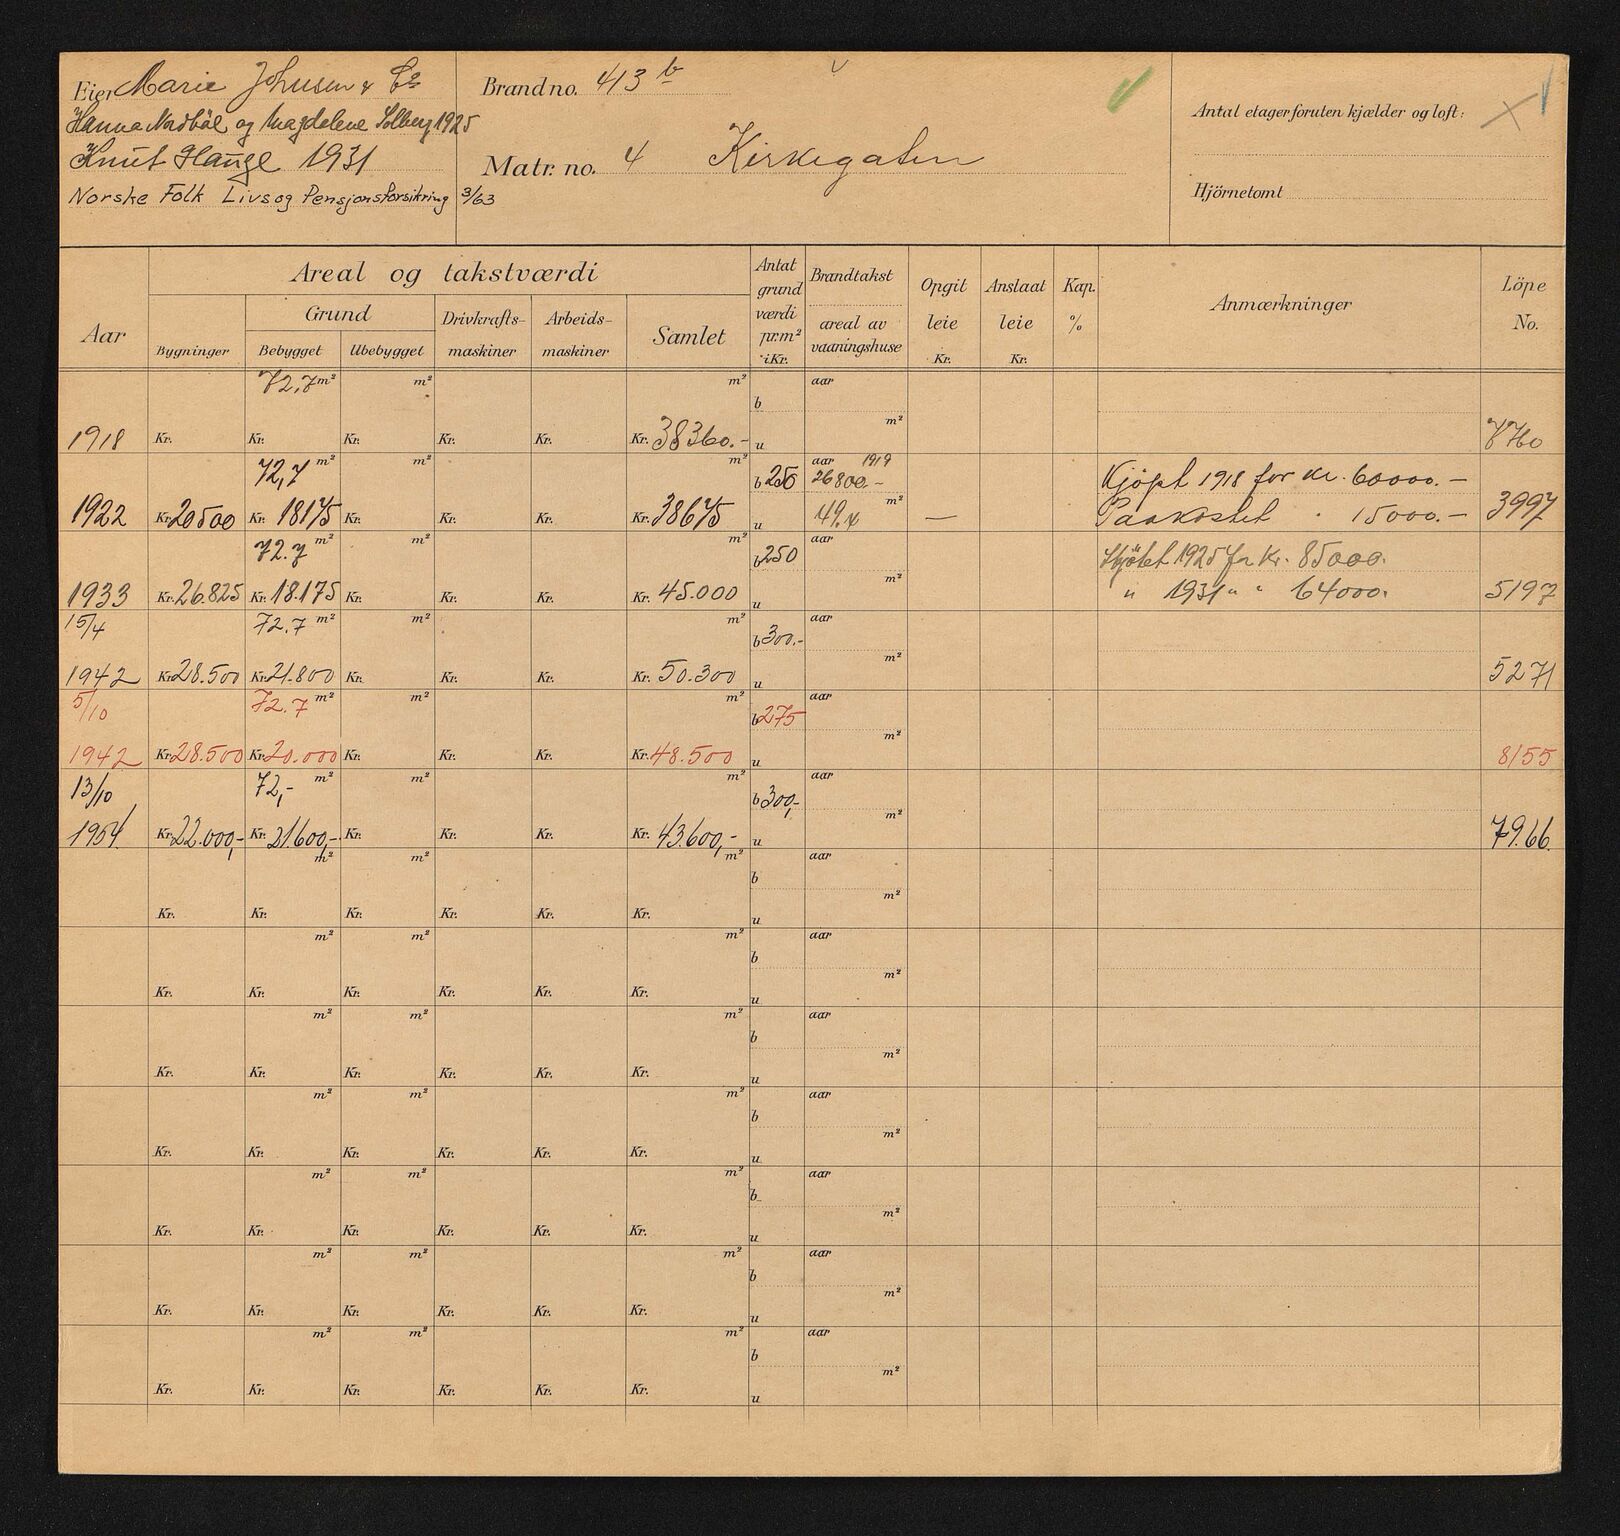 Eier Marie Johnsen & Co
Hanna Nordböe og Magdalene Solberg 1925
Knut Hauge 1931
Norske Folk Livs og Pensjonsforsikring 3/63
Brand no. 413 b
Matr. no. 4 Kirkegaten
Antal etager foruten kjælder og loft:
Hjörnetomt
Areal og takstværdi
Aar
Bygninger
Grund
Bebygget Ubebygget
Drivkrafts-
maskiner
Arbeids-
maskiner
Samlet
Antat
grund
værdi
pr.m²
i Kr.
Brandtakst
areal av
vaaningshuse
Opgit
leie
Kr.
Anslaat
leie
Kr.
Kap.
%
Anmærkninger
Löpe
No.
72,7 m² m² m² aar
b
m²
1918 Kr. Kr. Kr. Kr. Kr. Kr. 38360.- u 760
72,7 m² m² m² aar 1919
b 250 26800.- Kjöpt 1918 for kr. 60000.-
m²
1922 Kr. 20500 Kr. 18175 Kr. Kr. Kr. Kr. 38675 u — Paakostet " 15000.- 3997
72.7 m² m² m² aar
b 250 Skjötet 1925 for Kr. 85000.
m²
1933 Kr. 26.825 Kr. 18.175 Kr. Kr. Kr. Kr. 45.000 u " 1931 " " 64000. 5197
15/4 72.7 m² m² m² aar
b 300.-
m²
1942 Kr. 28.500 Kr. 21.800 Kr. Kr. Kr. Kr. 50.300 u 5271
5/10 72.7 m² m² m² aar
b 275
m²
1942 Kr. 28.500 Kr. 20.000 Kr. Kr. Kr. Kr. 48.500 u 8155
13/10 72,- m² m² m² aar
b 300,-
m²
1954 Kr. 22.000,- Kr. 21.600,- Kr. Kr. Kr. Kr. 43.600,- u 7966
m² m² m² aar
b
m²
Kr. Kr. Kr. Kr. Kr. Kr. u
m² m² m² aar
b
m²
Kr. Kr. Kr. Kr. Kr. Kr. u
m² m² m² aar
b
m²
Kr. Kr. Kr. Kr. Kr. Kr. u
m² m² m² aar
b
m²
Kr. Kr. Kr. Kr. Kr. Kr. u
m² m² m² aar
b
m²
Kr. Kr. Kr. Kr. Kr. Kr. u
m² m² m² aar
b
m²
Kr. Kr. Kr. Kr. Kr. Kr. u
m² m² m² aar
b
m²
Kr. Kr. Kr. Kr. Kr. Kr. u